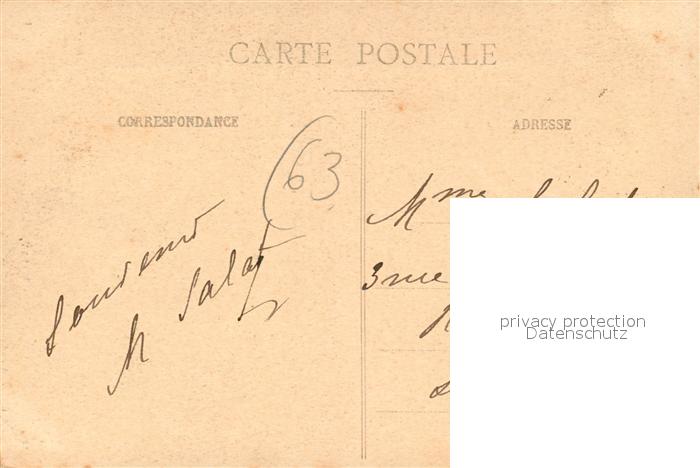 CARTE POSTALE
CORRESPONDANCE
ADRESSE
(63
Souvenir
M Salat
Mme
3 rue
privacy protection
Datenschutz